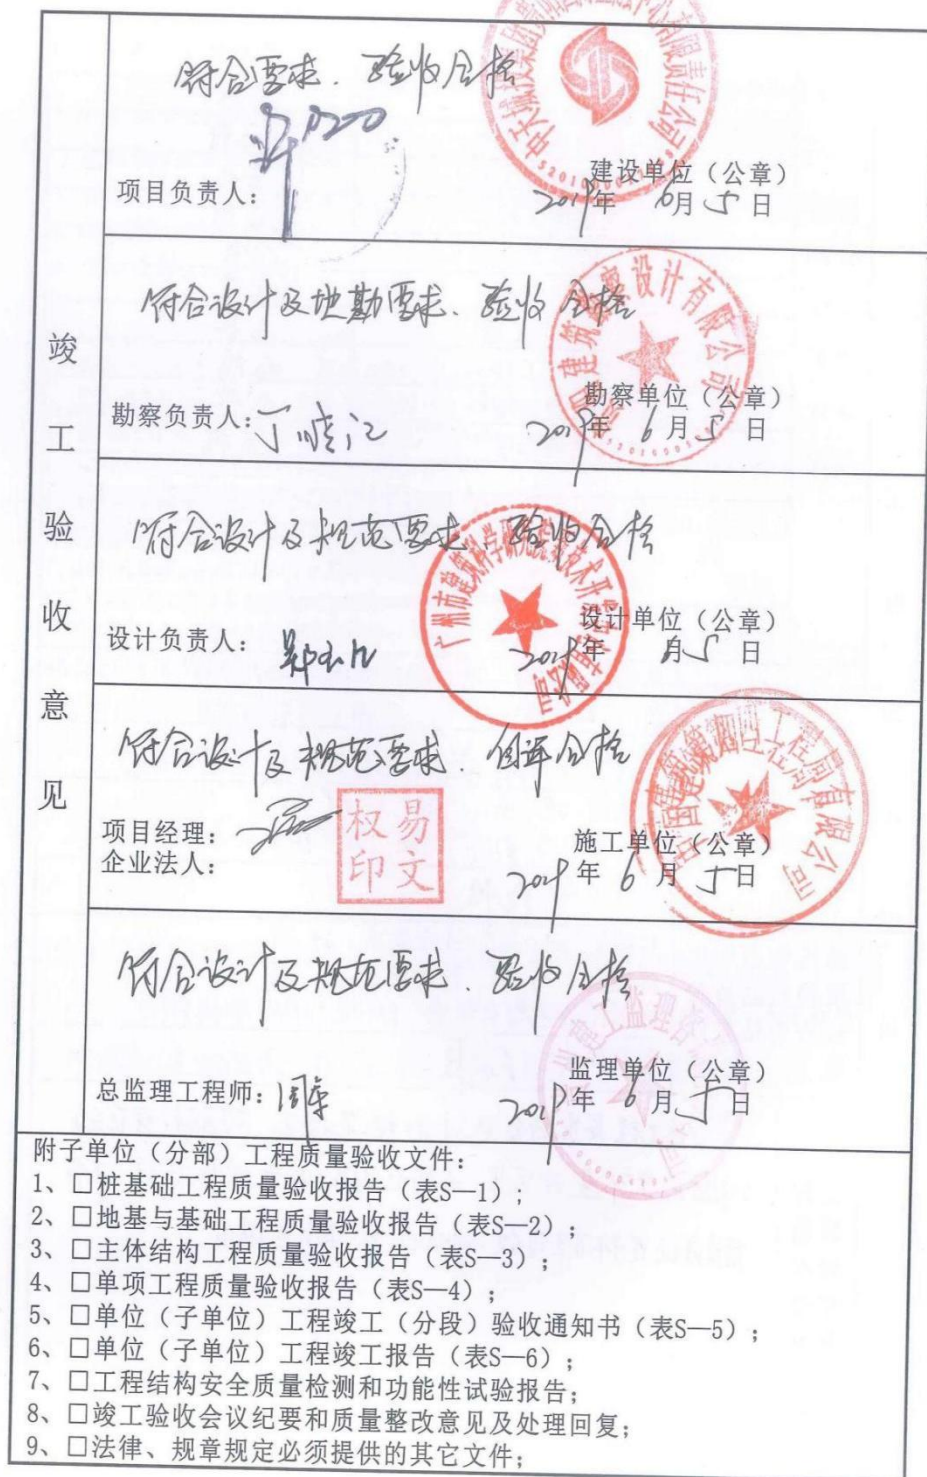 竣工验收意见
符合要求、验收合格
项目负责人：
建设单位（公章）
2019年 6月5日
符合设计及地勘要求、验收合格
建筑勘察设计有限公司
勘察负责人：
勘察单位（公章）
2019年 6月5日
符合设计及规范要求、验收合格
广州市建筑科学研究院新技术开发中心有限公司
设计负责人：
设计单位（公章）
2019年 6月5日
符合设计及规范要求、自评合格
项目经理：
企业法人：
易文权印
施工单位（公章）
2019年 6月5日
符合设计及规范要求、验收合格
总监理工程师：
监理单位（公章）
2019年 6月5日
附子单位（分部）工程质量验收文件：
1、□桩基础工程质量验收报告（表S—1）；
2、□地基与基础工程质量验收报告（表S—2）；
3、□主体结构工程质量验收报告（表S—3）；
4、□单项工程质量验收报告（表S—4）；
5、□单位（子单位）工程竣工（分段）验收通知书（表S—5）；
6、□单位（子单位）工程竣工报告（表S—6）；
7、□工程结构安全质量检测和功能性试验报告；
8、□竣工验收会议纪要和质量整改意见及处理回复；
9、□法律、规章规定必须提供的其它文件；